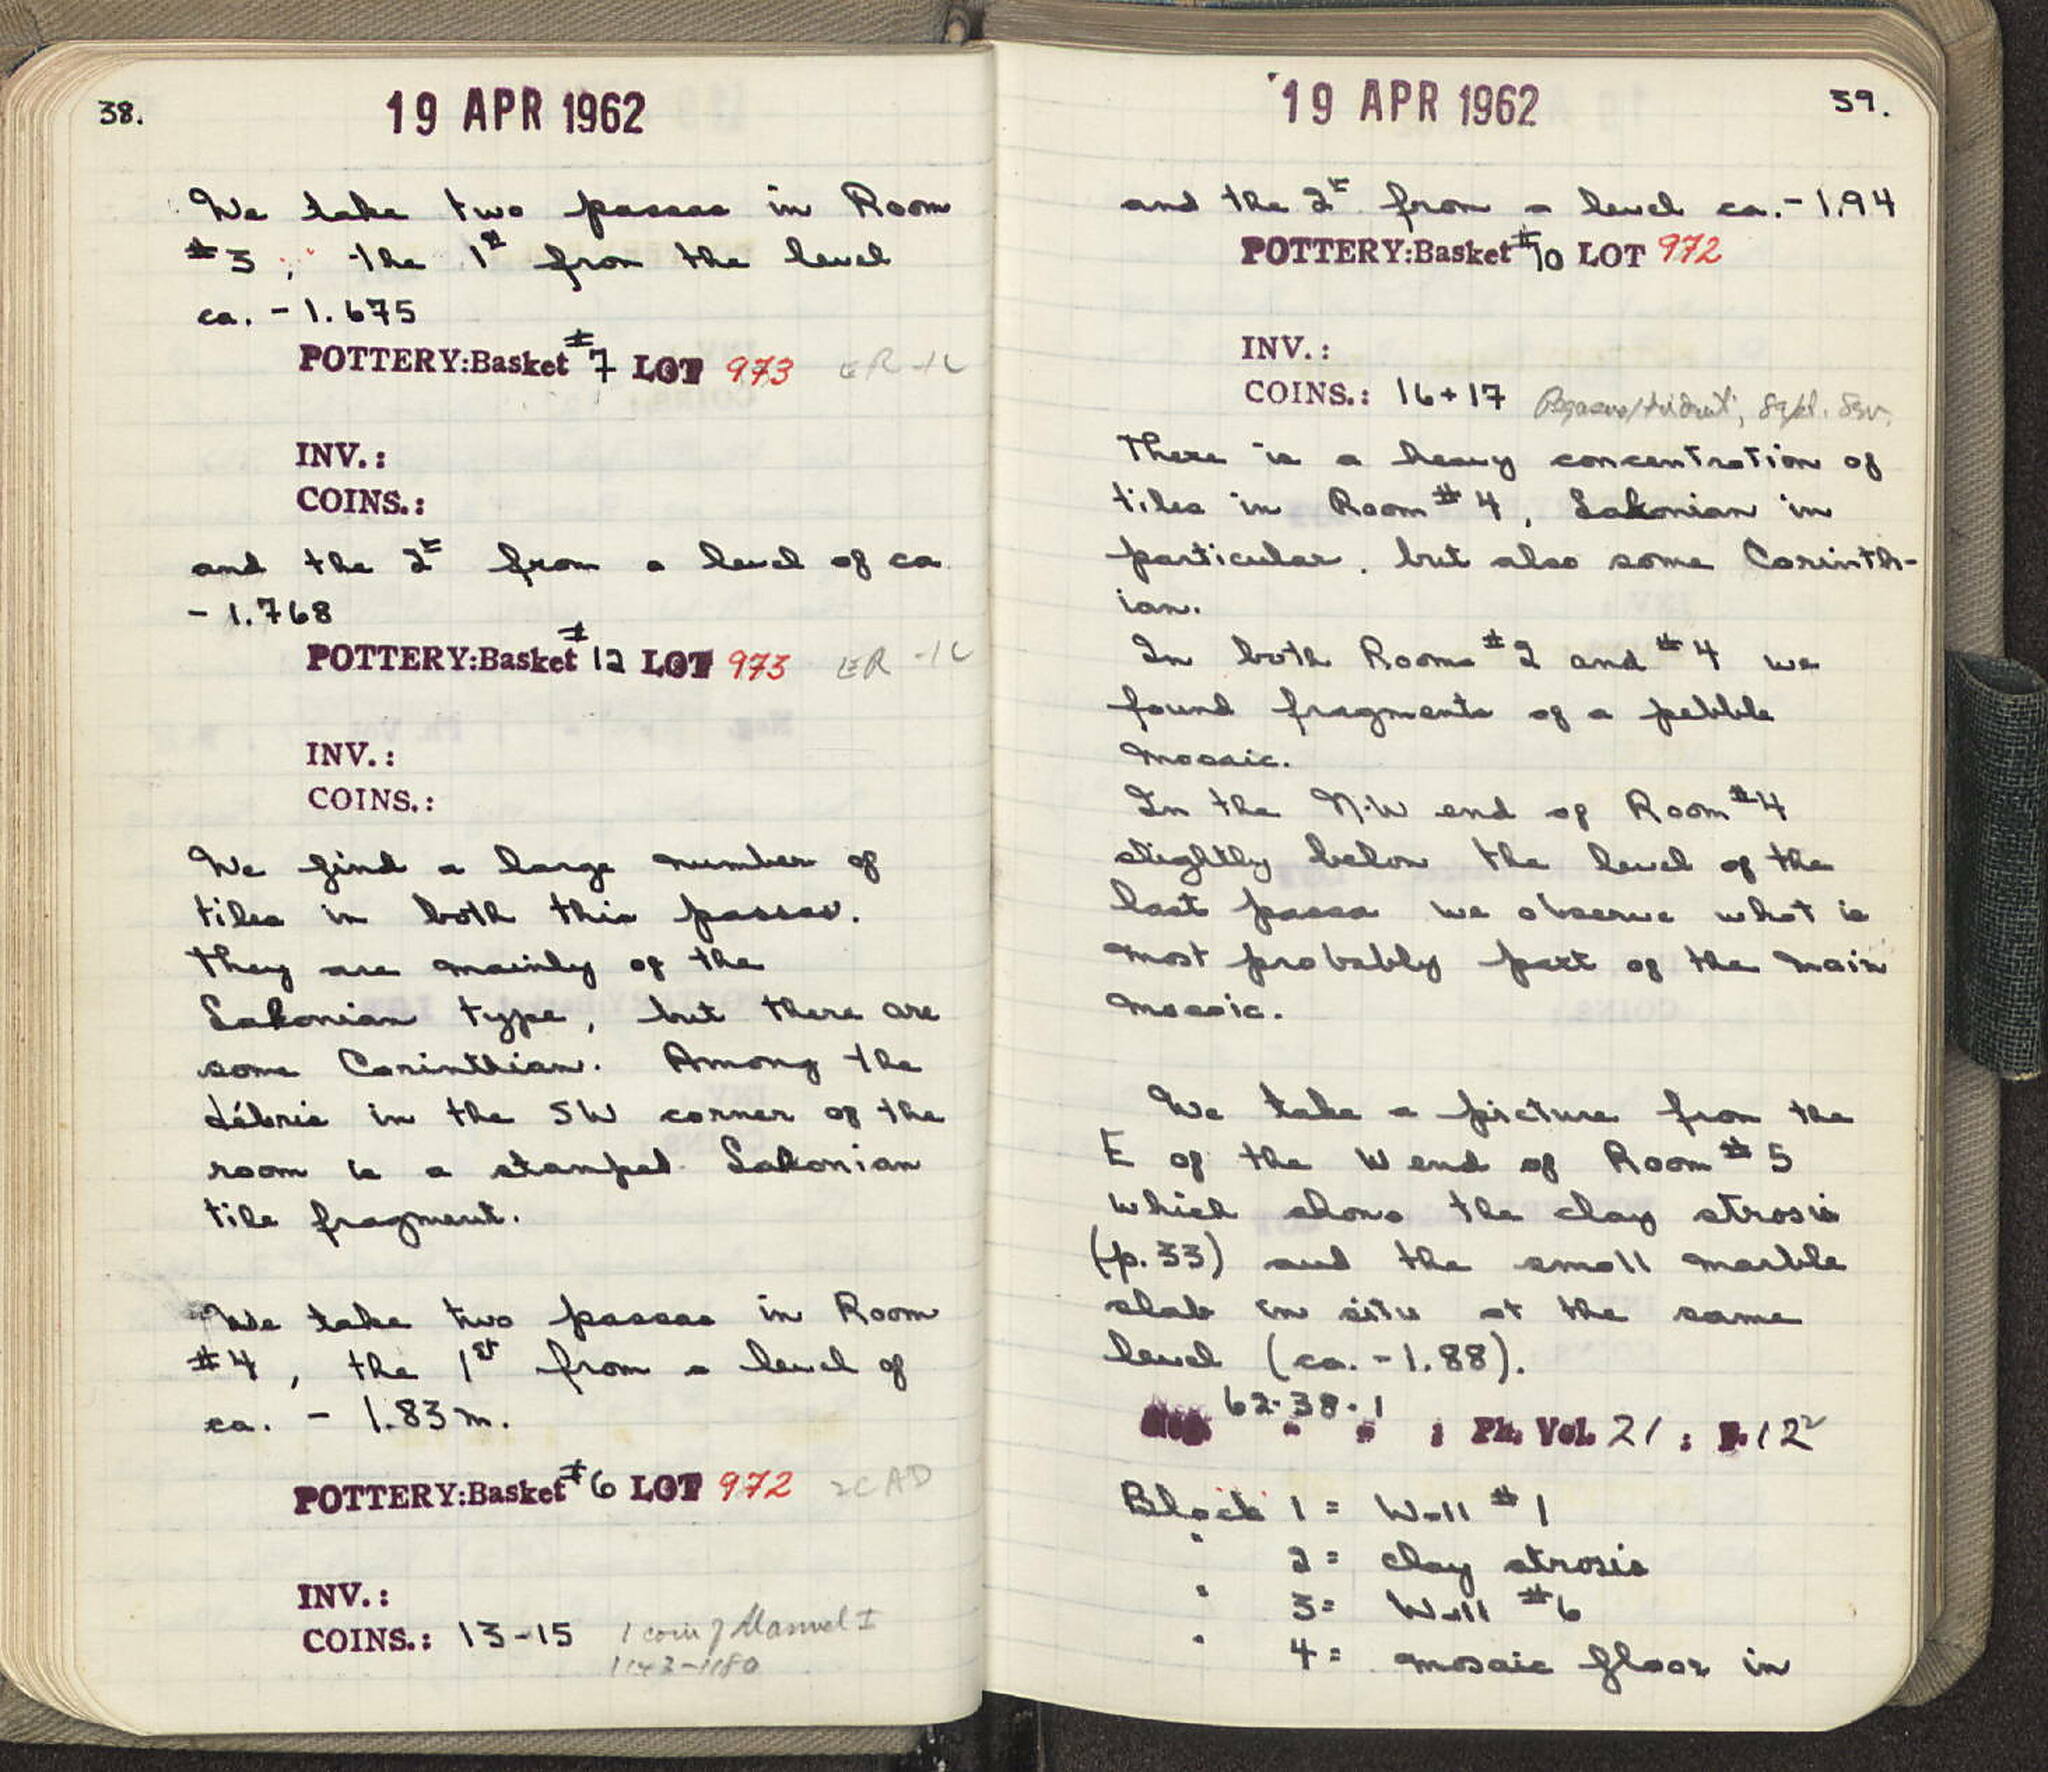 38.
19 APR 1962
We take two passes in Room
#3, the 1st from the level
ca. - 1.675
POTTERY:Basket #7 LOT 973 ER -1C
INV.:
COINS.:
and the 2nd from a level of ca
- 1.768
POTTERY:Basket #12 LOT 973 ER -1C
INV.:
COINS.:
We find a large number of
tiles in both this passes.
They are mainly of the
Lakonian type, but there are
some Corinthian. Among the
débris in the SW corner of the
room is a stamped Lakonian
tile fragment.
We take two passes in Room
#4, the 1st from a level of
ca. - 1.83 m.
POTTERY:Basket #6 LOT 972 2C AD
INV.:
COINS.: 13-15 1 coin of Manuel I
1143-1180
19 APR 1962
39.
and the 2nd from a level ca. - 1.94
POTTERY:Basket #10 LOT 972
INV.:
COINS.: 16+17 Pegasus/trident, Sept. Sev.
There is a heavy concentration of
tiles in Room #4, Lakonian in
particular, but also some Corinth-
ian.
In both Rooms #2 and #4 we
found fragments of a pebble
mosaic.
In the N.W end of Room #4
slightly below the level of the
last passa we observe what is
most probably part of the main
mosaic.
We take a picture from the
E of the W end of Room #5
which shows the clay strosis
(p. 33) and the small marble
slab in situ at the same
level (ca. - 1.88).
Neg. 62-38-1 ; Ph. Vol. 21 ; P. 12
Block 1 = Wall #1
" 2 = clay strosis
" 3 = Wall #6
" 4 = mosaic floor in